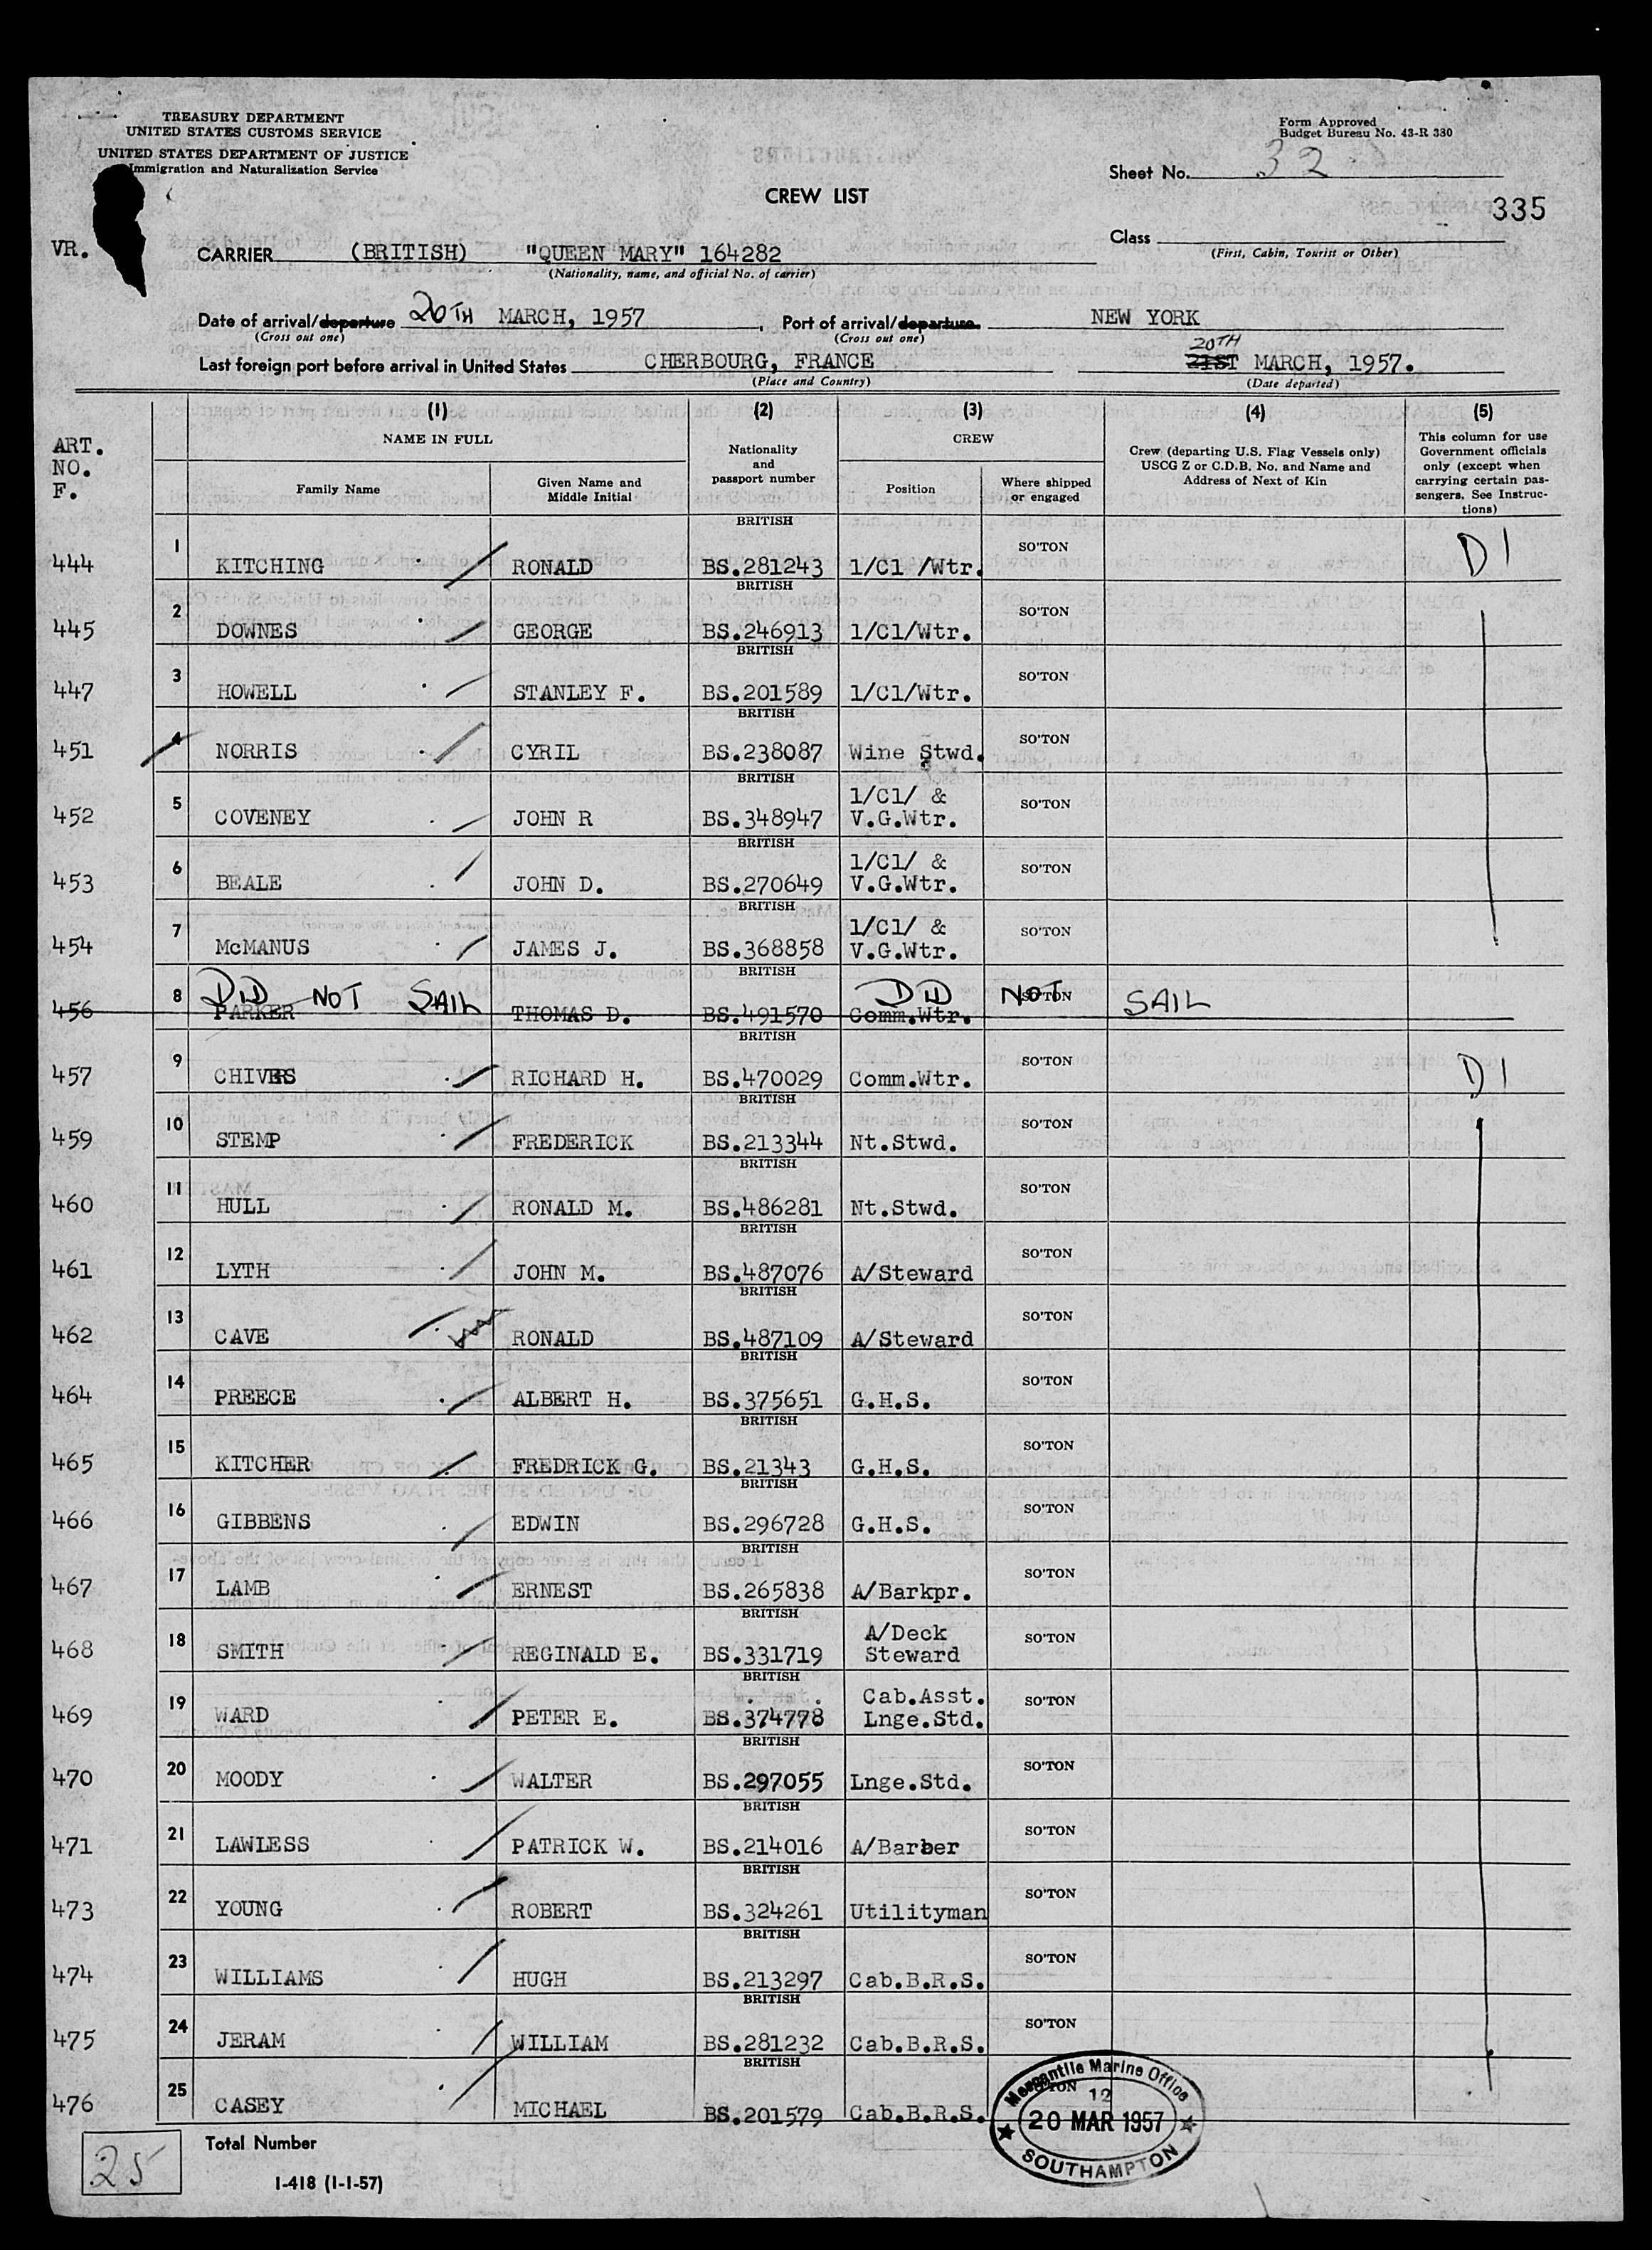 TREASURY DEPARTMENT
UNITED STATES CUSTOMS SERVICE
UNITED STATES DEPARTMENT OF JUSTICE
Immigration and Naturalization Service
Form Approved
Budget Bureau No. 43-R 330
Sheet No. 32
CREW LIST
335
Class
(First, Cabin, Tourist or Other)
VR.
CARRIER (BRITISH) "QUEEN MARY" 164282
(Nationality, name, and official No. of carrier)
Date of arrival/departure 20TH MARCH, 1957, Port of arrival/departure NEW YORK
(Cross out one) (Cross out one)
20TH
Last foreign port before arrival in United States CHERBOURG, FRANCE 21ST MARCH, 1957.
(Place and Country) (Date departed)
ART. NO. F.
(1) (2) (3) (4) (5)
NAME IN FULL
Nationality and passport number
CREW
Crew (departing U.S. Flag Vessels only) USCG Z or C.D.B. No. and Name and Address of Next of Kin
This column for use Government officials only (except when carrying certain passengers. See Instructions)
Family Name
Given Name and Middle Initial
Position
Where shipped or engaged
444 1 KITCHING RONALD BRITISH BS.281243 1/Cl /Wtr. SO'TON D1
445 2 DOWNES GEORGE BRITISH BS.246913 1/Cl/Wtr. SO'TON
447 3 HOWELL STANLEY F. BRITISH BS.201589 1/Cl/Wtr. SO'TON
451 4 NORRIS CYRIL BRITISH BS.238087 Wine Stwd. SO'TON
452 5 COVENEY JOHN R BRITISH BS.348947 1/Cl/ & V.G.Wtr. SO'TON
453 6 BEALE JOHN D. BRITISH BS.270649 1/Cl/ & V.G.Wtr. SO'TON
454 7 McMANUS JAMES J. BRITISH BS.368858 1/Cl/ & V.G.Wtr. SO'TON
DID NOT SAIL DID NOT SAIL
456 8 PARKER THOMAS D. BRITISH BS.491570 Comm.Wtr. SO'TON
457 9 CHIVERS RICHARD H. BRITISH BS.470029 Comm.Wtr. SO'TON D1
459 10 STEMP FREDERICK BRITISH BS.213344 Nt.Stwd. SO'TON
460 11 HULL RONALD M. BRITISH BS.486281 Nt.Stwd. SO'TON
461 12 LYTH JOHN M. BRITISH BS.487076 A/Steward SO'TON
462 13 CAVE RONALD BRITISH BS.487109 A/Steward SO'TON
464 14 PREECE ALBERT H. BRITISH BS.375651 G.H.S. SO'TON
465 15 KITCHER FREDRICK G. BRITISH BS.21343 G.H.S. SO'TON
466 16 GIBBENS EDWIN BRITISH BS.296728 G.H.S. SO'TON
467 17 LAMB ERNEST BRITISH BS.265838 A/Barkpr. SO'TON
468 18 SMITH REGINALD E. BRITISH BS.331719 A/Deck Steward SO'TON
469 19 WARD PETER E. BRITISH BS.374778 Cab.Asst. Lnge.Std. SO'TON
470 20 MOODY WALTER BRITISH BS.297055 Lnge.Std. SO'TON
471 21 LAWLESS PATRICK W. BRITISH BS.214016 A/Barber SO'TON
473 22 YOUNG ROBERT BRITISH BS.324261 Utilityman SO'TON
474 23 WILLIAMS HUGH BRITISH BS.213297 Cab.B.R.S. SO'TON
475 24 JERAM WILLIAM BRITISH BS.281232 Cab.B.R.S. SO'TON
476 25 CASEY MICHAEL BRITISH BS.201579 Cab.B.R.S.
Mercantile Marine Office
12
20 MAR 1957
SOUTHAMPTON
25 Total Number
I-418 (1-1-57)